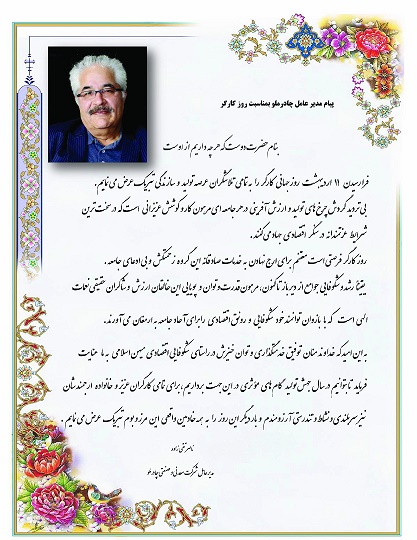 پیام مدیر عامل چادرملو بمناسبت روز کارگر
بنام حضرت دوست که هر چه داریم از اوست
فرارسیدن ۱۱ اردیبهشت روز جهانی کارگر را به تمامی تلاشگران عرصه تولید و سازندگی تبریک عرض می نمایم.
بی تردید گردش چرخ های تولید و ارزش آفرینی در هر جامعه ای مرهون کار و کوشش عزیزانی است که در سخت ترین
شرایط عزتمندانه در سنگر اقتصادی جهاد می کنند.
روز کارگر فرصتی است مغتنم برای ارج نهادن به خدمات صادقانه این گروه زحمتکش و بی ادعای جامعه.
یقینا رشد و شکوفایی جوامع از دیرباز تاکنون، مرهون قدرت و توان و پویایی این خالقان ارزش و شاکران حقیقی نعمات
الهی است که با بازوان توانمند خود شکوفایی و رونق اقتصادی را برای آحاد جامعه به ارمغان می آورند.
به این امید که خداوند منان توفیق خدمتگذاری و توان خیزش در راستای شکوفایی اقتصادی میهن اسلامی به ما عنایت
فرماید تا بتوانیم در سال جهش تولید گام های مؤثری در این جهت برداریم، برای تمامی کارگران عزیز و خانواده ارجمندشان
نیز سربلندی و نشاط و تندرستی آرزومندم و بار دیگر این روز را به همه خادمین واقعی این مرز و بوم تبریک عرض می نمایم.
ناصر تقی زاده
مدیر عامل شرکت معدنی و صنعتی چادرملو